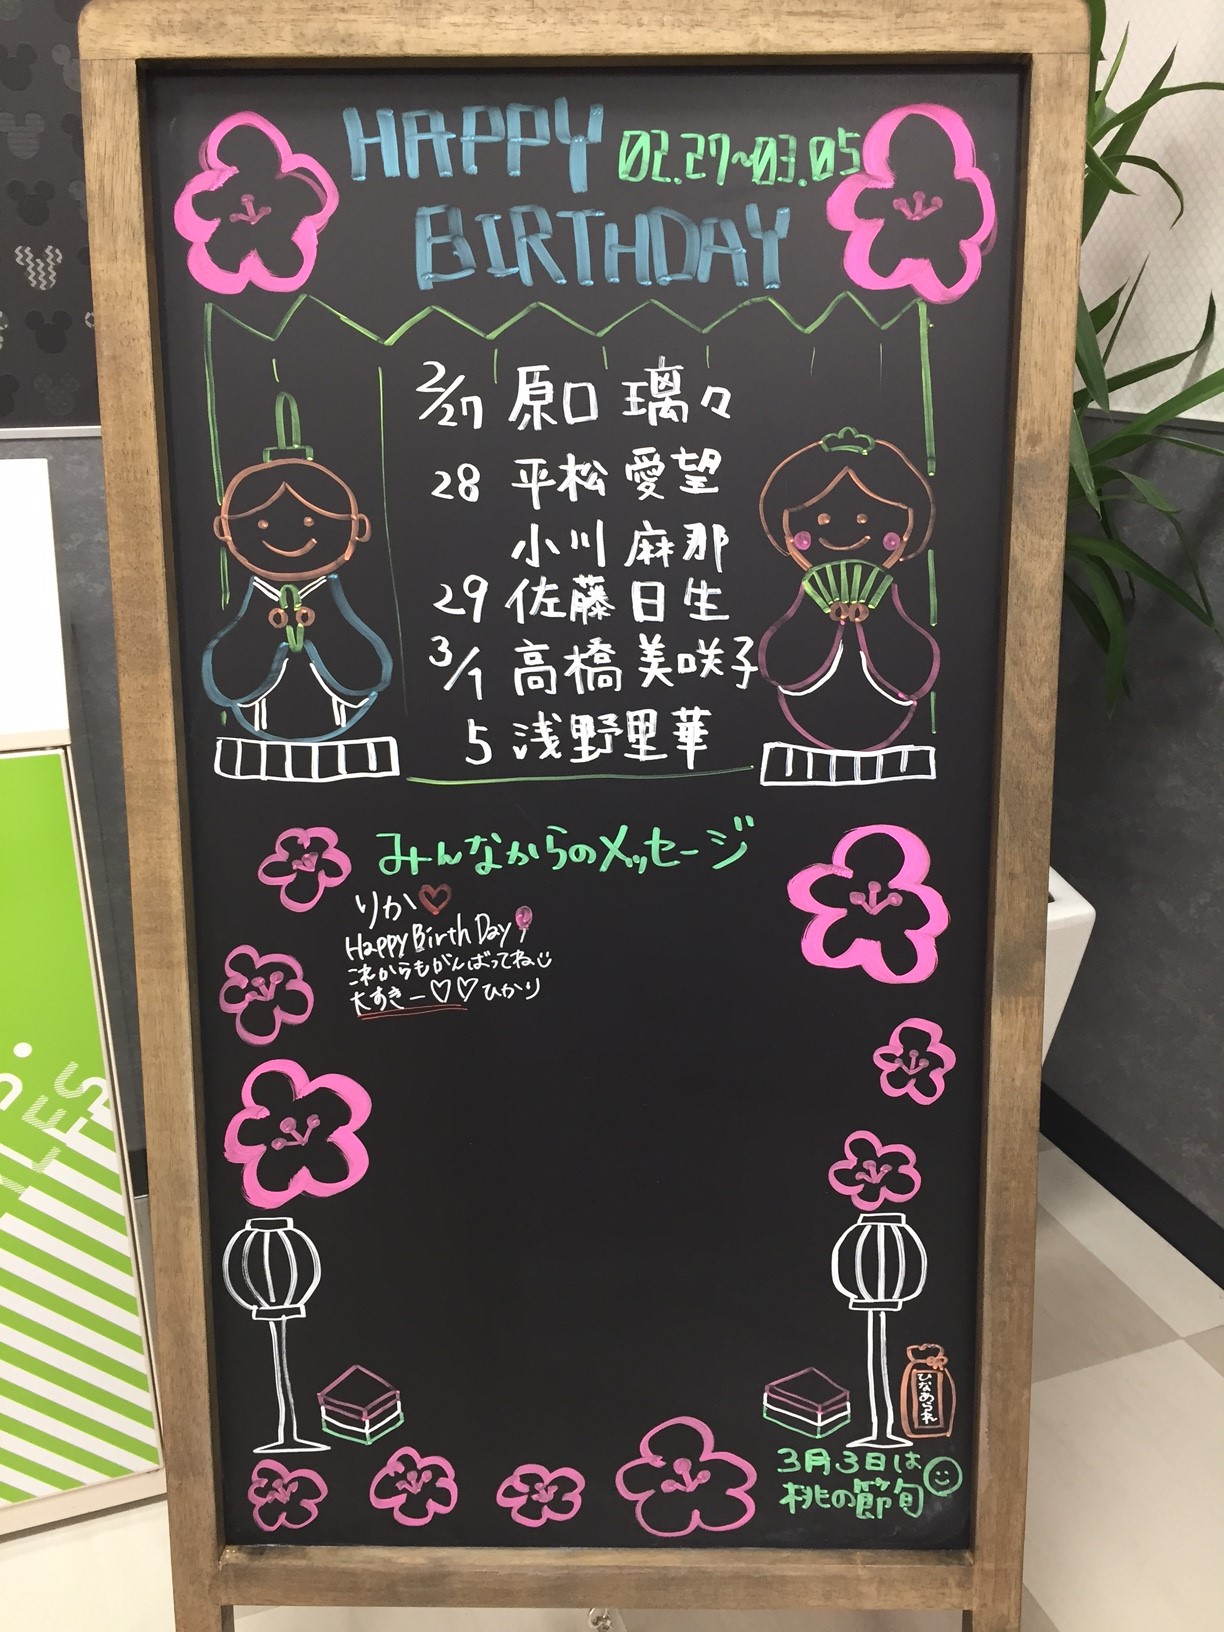 HAPPY 02.27~03.05
BIRTHDAY
2/27 原口 璃々
28 平松 愛望
小川 麻那
29 佐藤 日生
3/1 高橋 美咲子
5 浅野里華
みんなからのメッセージ
りか
Happy Birth Day
これからもがんばってね
大すきー♡♡ひかり
ひなあられ
3月3日は
桃の節旬